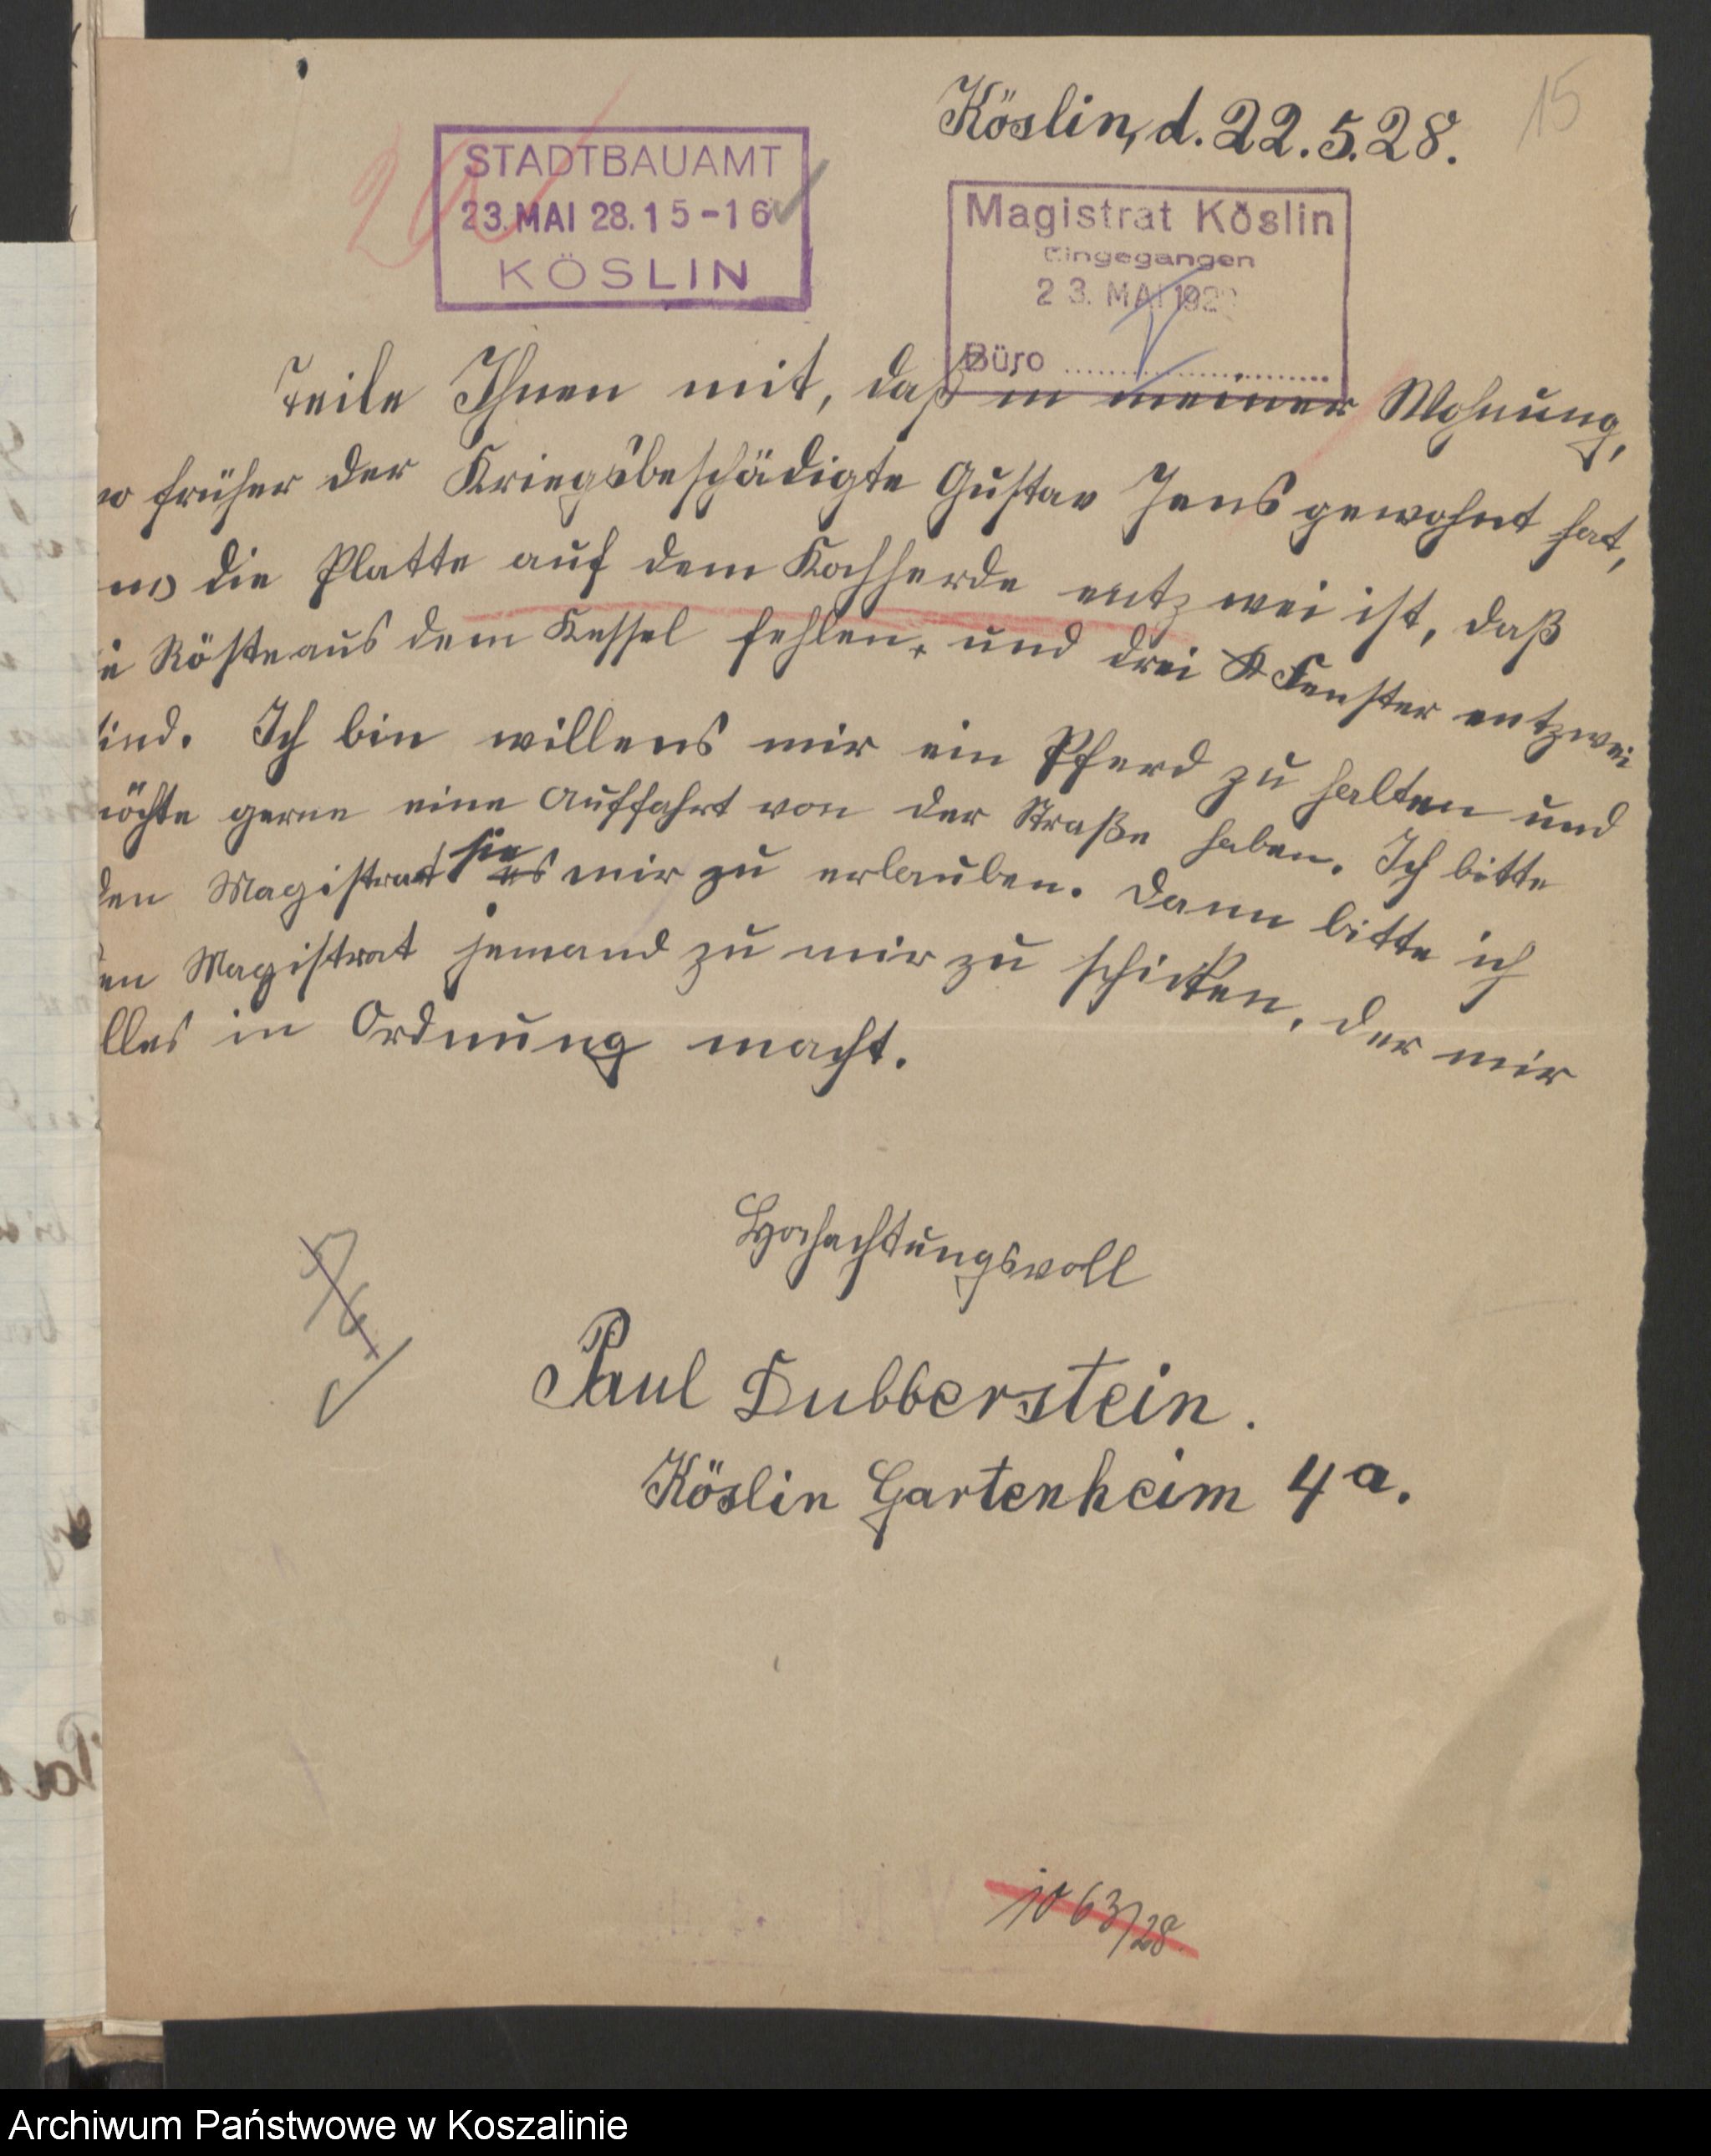 15
Köslin, d. 22.5.28.
STADTBAUAMT
23. MAI 28. 15-16
KÖSLIN
Magistrat Köslin
Eingegangen
23. MAI 192
Büro
Teile Ihnen mit, daß in meiner Wohnung,
wo früher der Kriegsbeschädigte Gustav Jens gewohnt hat,
uns die Platte auf dem Kochherde entzwei ist, daß
die Röste aus dem Kessel fehlen, und drei Fenster entzwei
sind. Ich bin willens mir ein Pferd zu halten und
möchte gerne eine Auffahrt von der Straße haben. Ich bitte
den Magistrat sie mir zu erlauben. Dann bitte ich
den Magistrat jemand zu mir zu schicken, der mir
alles in Ordnung macht.
Hochachtungsvoll
Paul Dubberstein.
Köslin Gartenheim 4a.
1063/28.
Archiwum Państwowe w Koszalinie